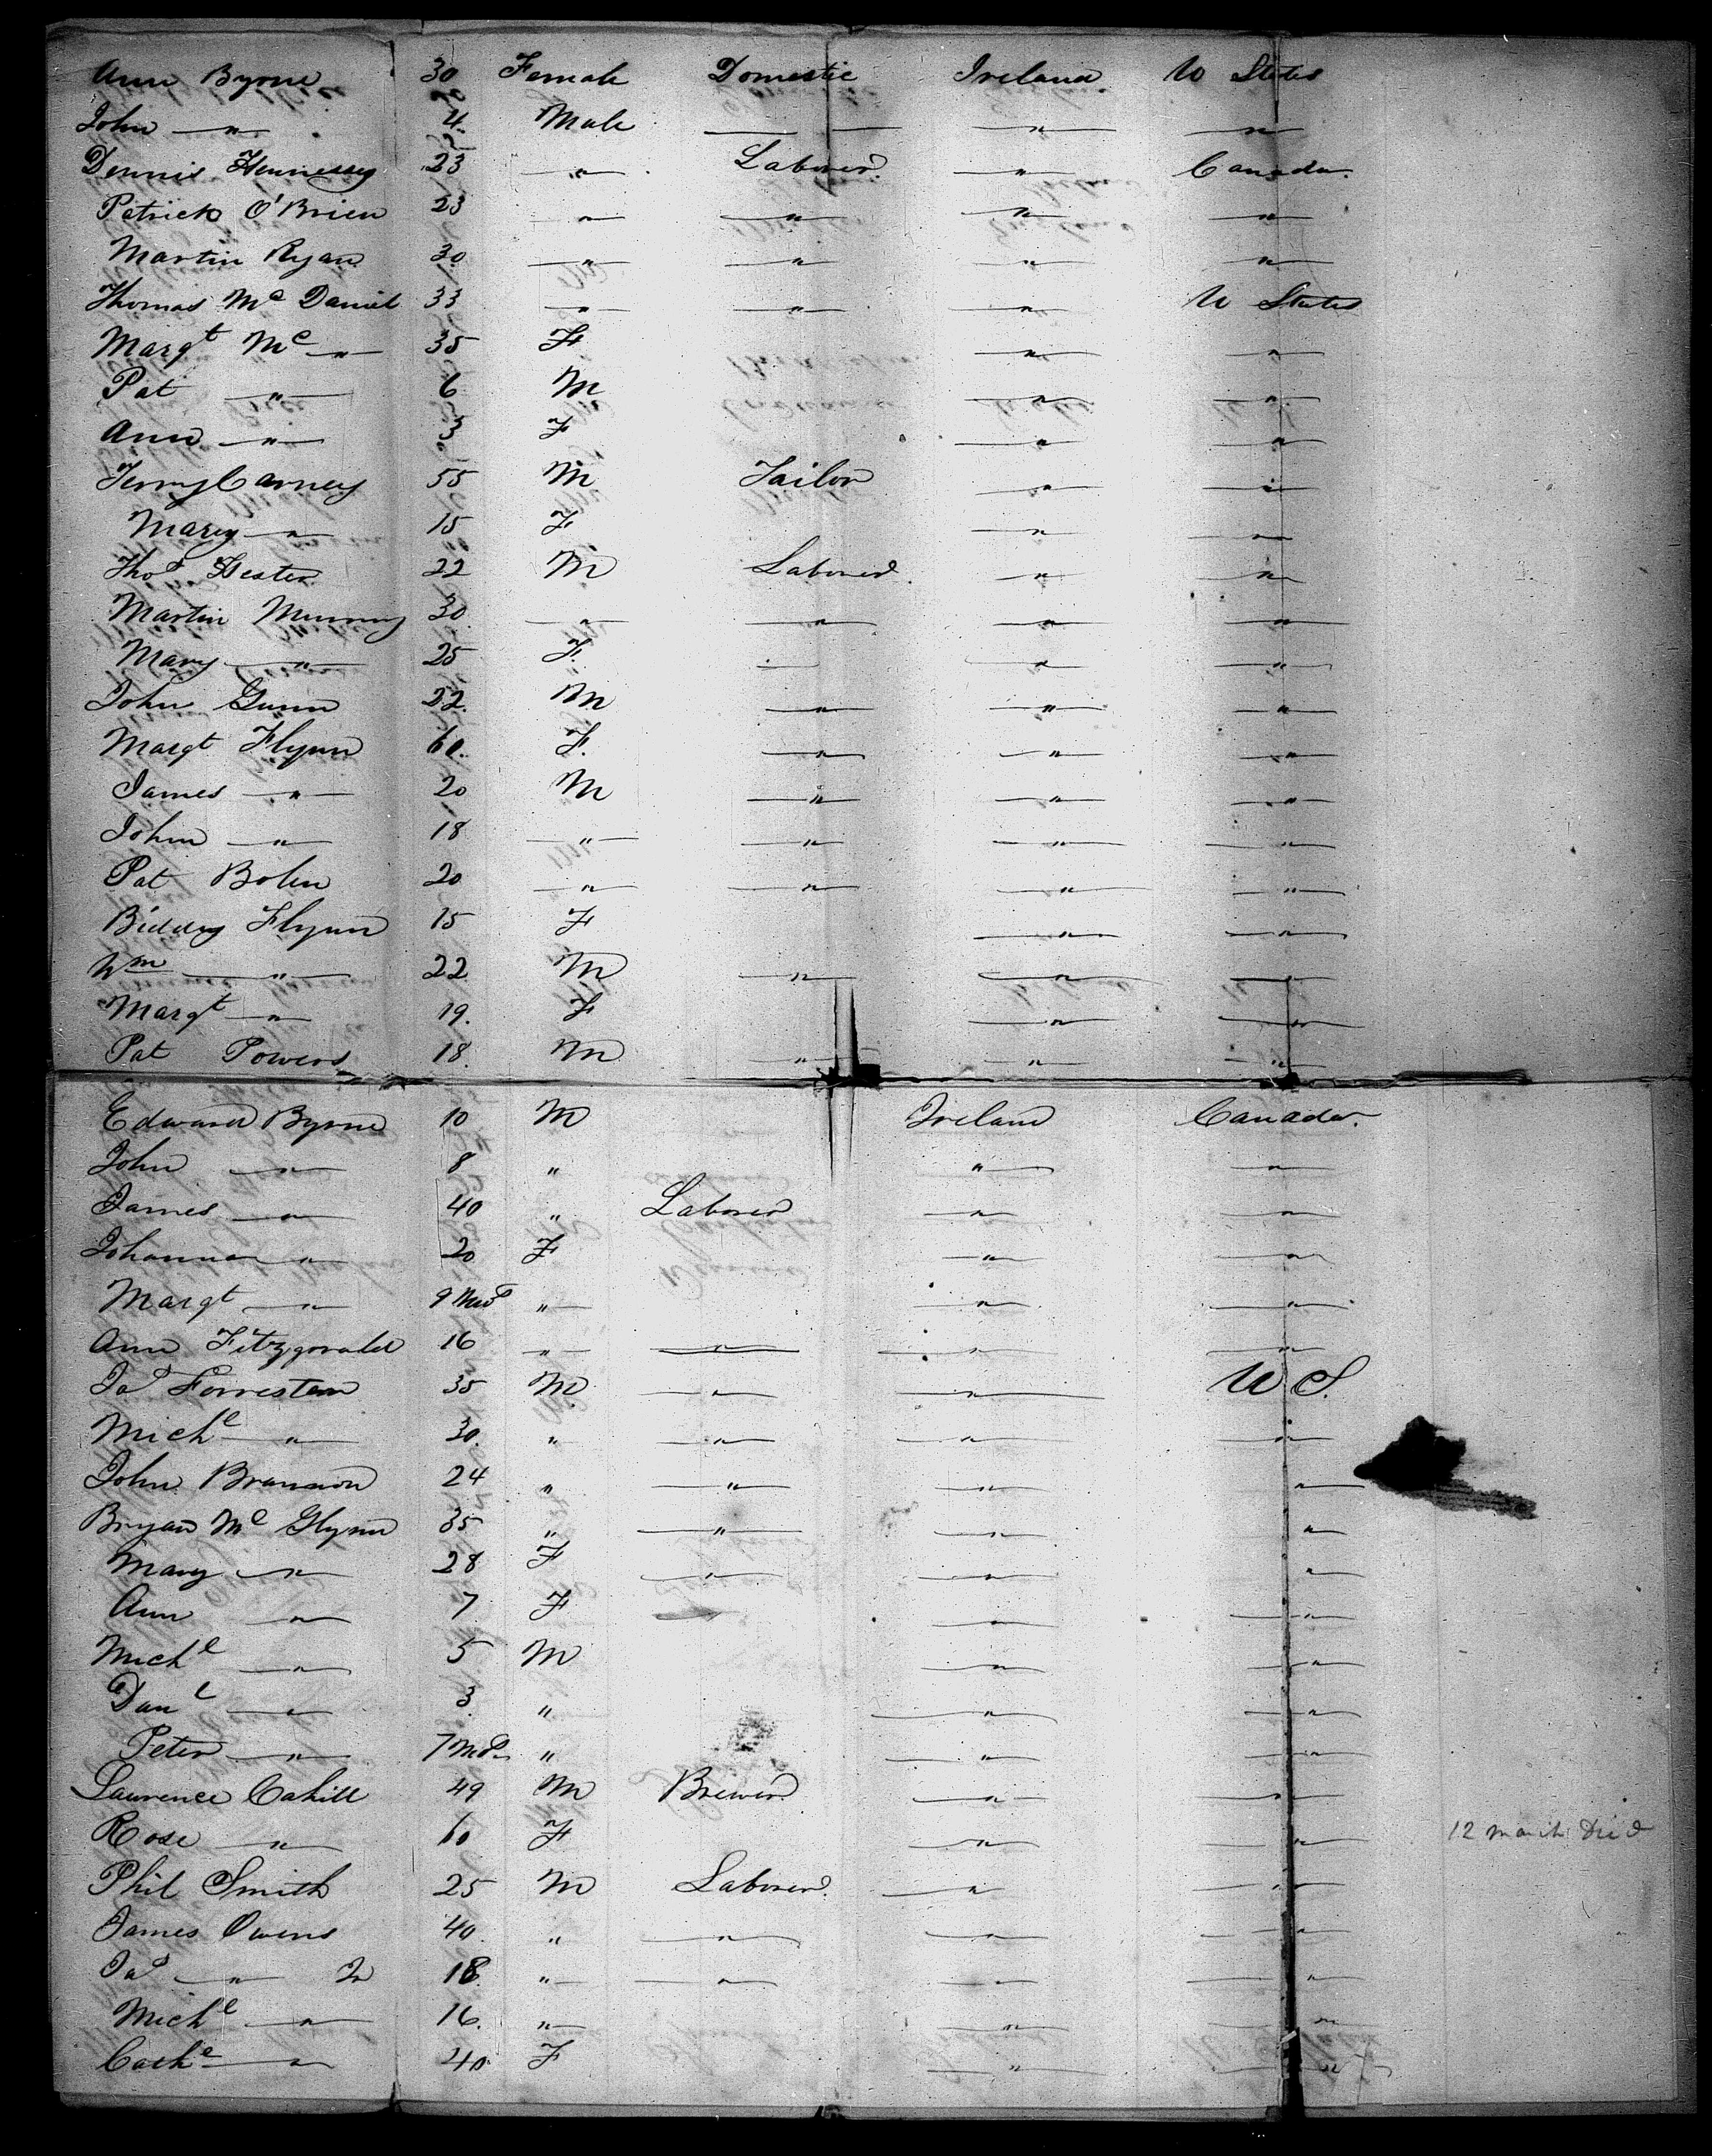 Ann Byrne 30 Female Domestic Ireland U States
John — " — 4 Male — — — " — — " —
Dennis Hennessy 23 — " — Laborer — " — Canada
Patrick O'Brien 23 — " — — " — — " — — " —
Martin Ryan 30 — " — — " — — " — — " —
Thomas Mc Daniel 33 — " — — " — — " — U States
Margt Mc — " — 35 F — " — — " —
Pat — " — 6 M — " — — " —
Ann — " — 3 F — " — — " —
Terry Carney 55 M Tailor — " — — " —
Mary — " — 15 F — " — — " —
Thos Hester 22 M Laborer — " — — " —
Martin Murray 30 — " — — " — — " — — " —
Mary — " — 25 F. — — " — — " —
John Gunn 22. M — " — — " — — " —
Margt Flynn 60. F. — " — — " — — " —
James — " — 20 M — " — — " — — " —
John — " — 18 — " — — " — — " — — " —
Pat Bolen 20 — " — — " — — " — — " —
Biddy Flynn 15 F — " — — " —
Wm — " — 22 M — " — — " — — " —
Margt — " — 19. F — " — — " —
Pat Powers 18. M — " — — " — — " —
Edward Byrne 10 M Ireland Canada.
John — " — 8 " — " — — " —
James — " — 40 " Laborer — " — — " —
Johanna — " — 20 F — " — — " —
Margt — " — 9 Mos " — — " — — " —
Ann Fitzgerald 16 — " — — " — — " — — " —
Jas Forrester 35 M — " — — " — U S.
Michl — " — 30. " — " — — " — — " —
John Brannon 24 " — " — — " — — " —
Bryan Mc Glynn 35 " — " — — " — — " —
Mary — " — 28 F — " — — " — — " —
Ann — " — 7 F — — " — — " —
Michl — " — 5 M — " — — " —
Danl — " — 3 " — " — — " —
Peter — " — 7 Mos " — " — — " —
Laurence Cahill 49 M Brewer — " — — " —
Rose — " — 60 F — " — — " — 12 March Died
Phil Smith 25 M Laborer — " — — " —
James Owens 40. " — " — — " — — " —
Jas — " — Jr 18 " — — " — — " — — " —
Michl — " — 16. " — — " — — " —
Cathe — " — 40 F — " — — " —